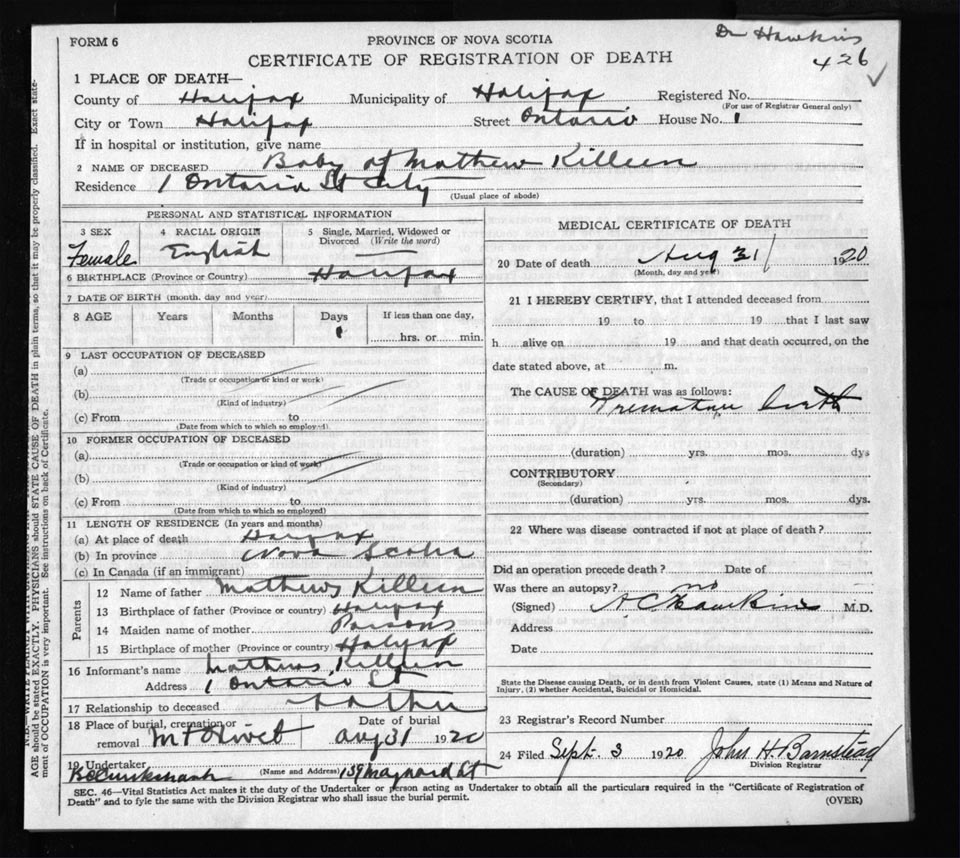 Dr Hawkins
426 ✓
FORM 6
PROVINCE OF NOVA SCOTIA
CERTIFICATE OF REGISTRATION OF DEATH
1 PLACE OF DEATH—
County of Halifax Municipality of Halifax Registered No.
(For use of Registrar General only)
City or Town Halifax Street Ontario House No. 1
If in hospital or institution, give name
2 NAME OF DECEASED Baby of Mathew Killeen
Residence 1 Ontario St City
(Usual place of abode)
PERSONAL AND STATISTICAL INFORMATION
3 SEX 4 RACIAL ORIGIN 5 Single, Married, Widowed or Divorced (Write the word)
Female English —
6 BIRTHPLACE (Province or Country) Halifax
7 DATE OF BIRTH (month, day and year)
8 AGE Years Months Days If less than one day,
1 hrs. or min.
9 LAST OCCUPATION OF DECEASED
(a)
(Trade or occupation or kind or work)
(b)
(Kind of industry)
(c) From to
(Date from which to which so employed)
10 FORMER OCCUPATION OF DECEASED
(a)
(Trade or occupation or kind of work)
(b)
(Kind of industry)
(c) From to
(Date from which to which so employed)
11 LENGTH OF RESIDENCE (In years and months)
(a) At place of death Halifax
(b) In province Nova Scotia
(c) In Canada (if an immigrant)
Parents
12 Name of father Mathew Killeen
13 Birthplace of father (Province or country) Halifax
14 Maiden name of mother Parsons
15 Birthplace of mother (Province or country) Halifax
16 Informant's name Mathew Killeen
Address 1 Ontario St
17 Relationship to deceased Father
18 Place of burial, cremation or removal Mt Olivet Date of burial Aug 31 1920
19 Undertaker
(Name and Address) 139 Maynard St
MEDICAL CERTIFICATE OF DEATH
20 Date of death Aug 31/ 1920
(Month, day and year)
21 I HEREBY CERTIFY, that I attended deceased from
19 to 19 that I last saw
h alive on 19 and that death occurred, on the
date stated above, at m.
The CAUSE OF DEATH was as follows:
Premature birth
(duration) yrs. mos. dys
CONTRIBUTORY
(Secondary)
(duration) yrs. mos. dys.
22 Where was disease contracted if not at place of death?
Did an operation precede death? Date of
Was there an autopsy? no
(Signed) A C Hawkins M.D.
Address
Date
State the Disease causing Death, or in death from Violent Causes, state (1) Means and Nature of
Injury, (2) whether Accidental, Suicidal or Homicidal.
23 Registrar's Record Number
24 Filed Sept 3 1920 John H. Barnstead
Division Registrar
SEC. 46—Vital Statistics Act makes it the duty of the Undertaker or person acting as Undertaker to obtain all the particulars required in the "Certificate of Registration of
Death" and to fyle the same with the Division Registrar who shall issue the burial permit.
(OVER)
AGE should be stated EXACTLY. PHYSICIANS should STATE CAUSE OF DEATH in plain terms, so that it may be properly classified. Exact state-
ment of OCCUPATION is very important. See instructions on back of Certificate.